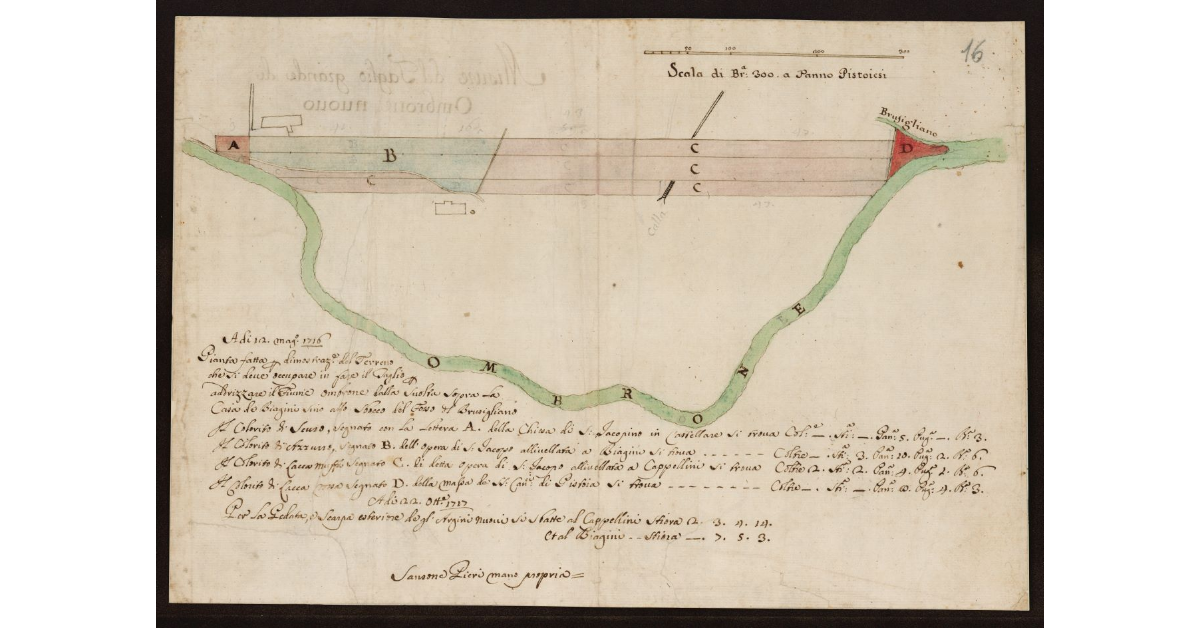 16
50 100 200 300
Scala di Br: 300. a Panno Pistoiesi
Brusigliano
A
B
C
C
C
C
D
Calla
O M B R O N E
A di 12. mag: 1716
Pianta fatta p dimostraz: del Terreno
che si deve occupare in fare il Taglio p
adirizzare il Fiume Ombrone dalla Svolta sopra La
Casa de Biagini sino allo sbocco del Fosso di Brusigliano
Al Colorito di Scuro, segnato con La Lettera A. della Chiesa di S: Jacopino in Castellare si trova Col: — Sti: —. Pan: 5. Pug: —. Br: 3.
Al Colorito di Azzurro, segnato B. dell'opera di S: Jacopo allivellata a Biagini si trova Coltre —. Sti: 3. Pan: 10. Pug: 2. Br: 6.
Al Colorito di Lacca muffo Segnato C. di detta opera di S: Jacopo allivellata a Cappellini si trova Coltre 2. Sti: 2. Pan: 4. Pug: 2. Br: 6.
Al Colorito di Lacca Segnato D. della massa de SS: Can: di Pistoia si trova Coltre —. Sti: —. Pan: Pug: 4. Br: 3.
Adi 22. Ott: 1717
Per La Pedata, e Scarpa esteriore degl'Argini nuovi si sbatte al Cappellini Stiora 2. 3. 4. 14.
Et al Biagini - - Stiora —. 7. 5. 3.
Sansone Pieri mano propria